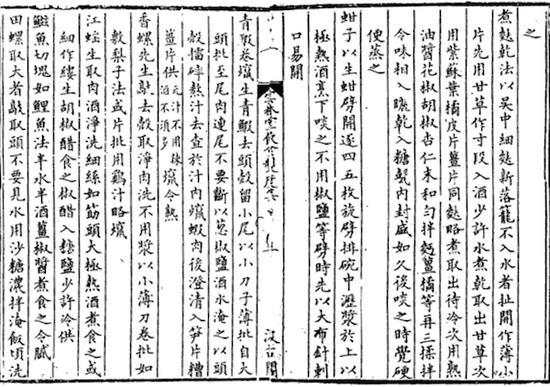 煮麩乾法以吳中細麩新落籠不入水者扯開作薄小
片先用甘草作寸段入酒少許水煮乾取出甘草次
用紫蘇葉橘皮片薑片同麩略煮取出待冷次用熟
油醬花椒胡椒杏仁末和勻拌麵薑橘等再三揉拌
令味相入曬乾入糖甏內封盛如久後啖之時覺硬
便蒸之
蚶子以生蚶劈開逐四五枚旋劈排碗中瀝漿於上以
極熱酒烹下啖之不用椒鹽等劈時先以大布針刺
口易開
雲林堂飲食制度集 汲古閣
青蝦卷爁生青蝦去頭殼留小尾以小刀子薄批自大
頭批至尾肉連尾不要斷以葱椒鹽酒水淹之以頭
殼擂碎熬汁去查於汁內爁蝦肉後澄清入笋片糟
薑片供元汁不用辣酒不須多爁令熟
香螺先生敲去殼取淨肉洗不用漿以小薄刀卷批如
敷梨子法或片批用鷄汁略爁
江生取肉酒淨洗細絲如筯頭大極熱酒煮食之或
細作縷生胡椒醋食之椒醋入糖鹽少許冷供
魚切塊如鯉魚法半水半酒薑椒醬煮食之令膩
田螺取大者敲取頭不要見水用沙糖濃拌淹飯頃洗